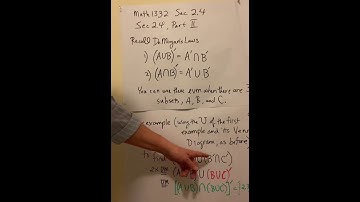 Math 1332 Sec 2.4
Sec 2.4, Part II
Recall DeMorgan's Laws
1) (A∪B)' = A'∩B'
2) (A∩B)' = A'∪B'
You can use these even when there are 3
subsets, A, B, and C.
example (using the U of the first
example and its Venn
Diagram, as before)
to find
(B'∩C')
∪(B∪C)'
∩(B∪C)